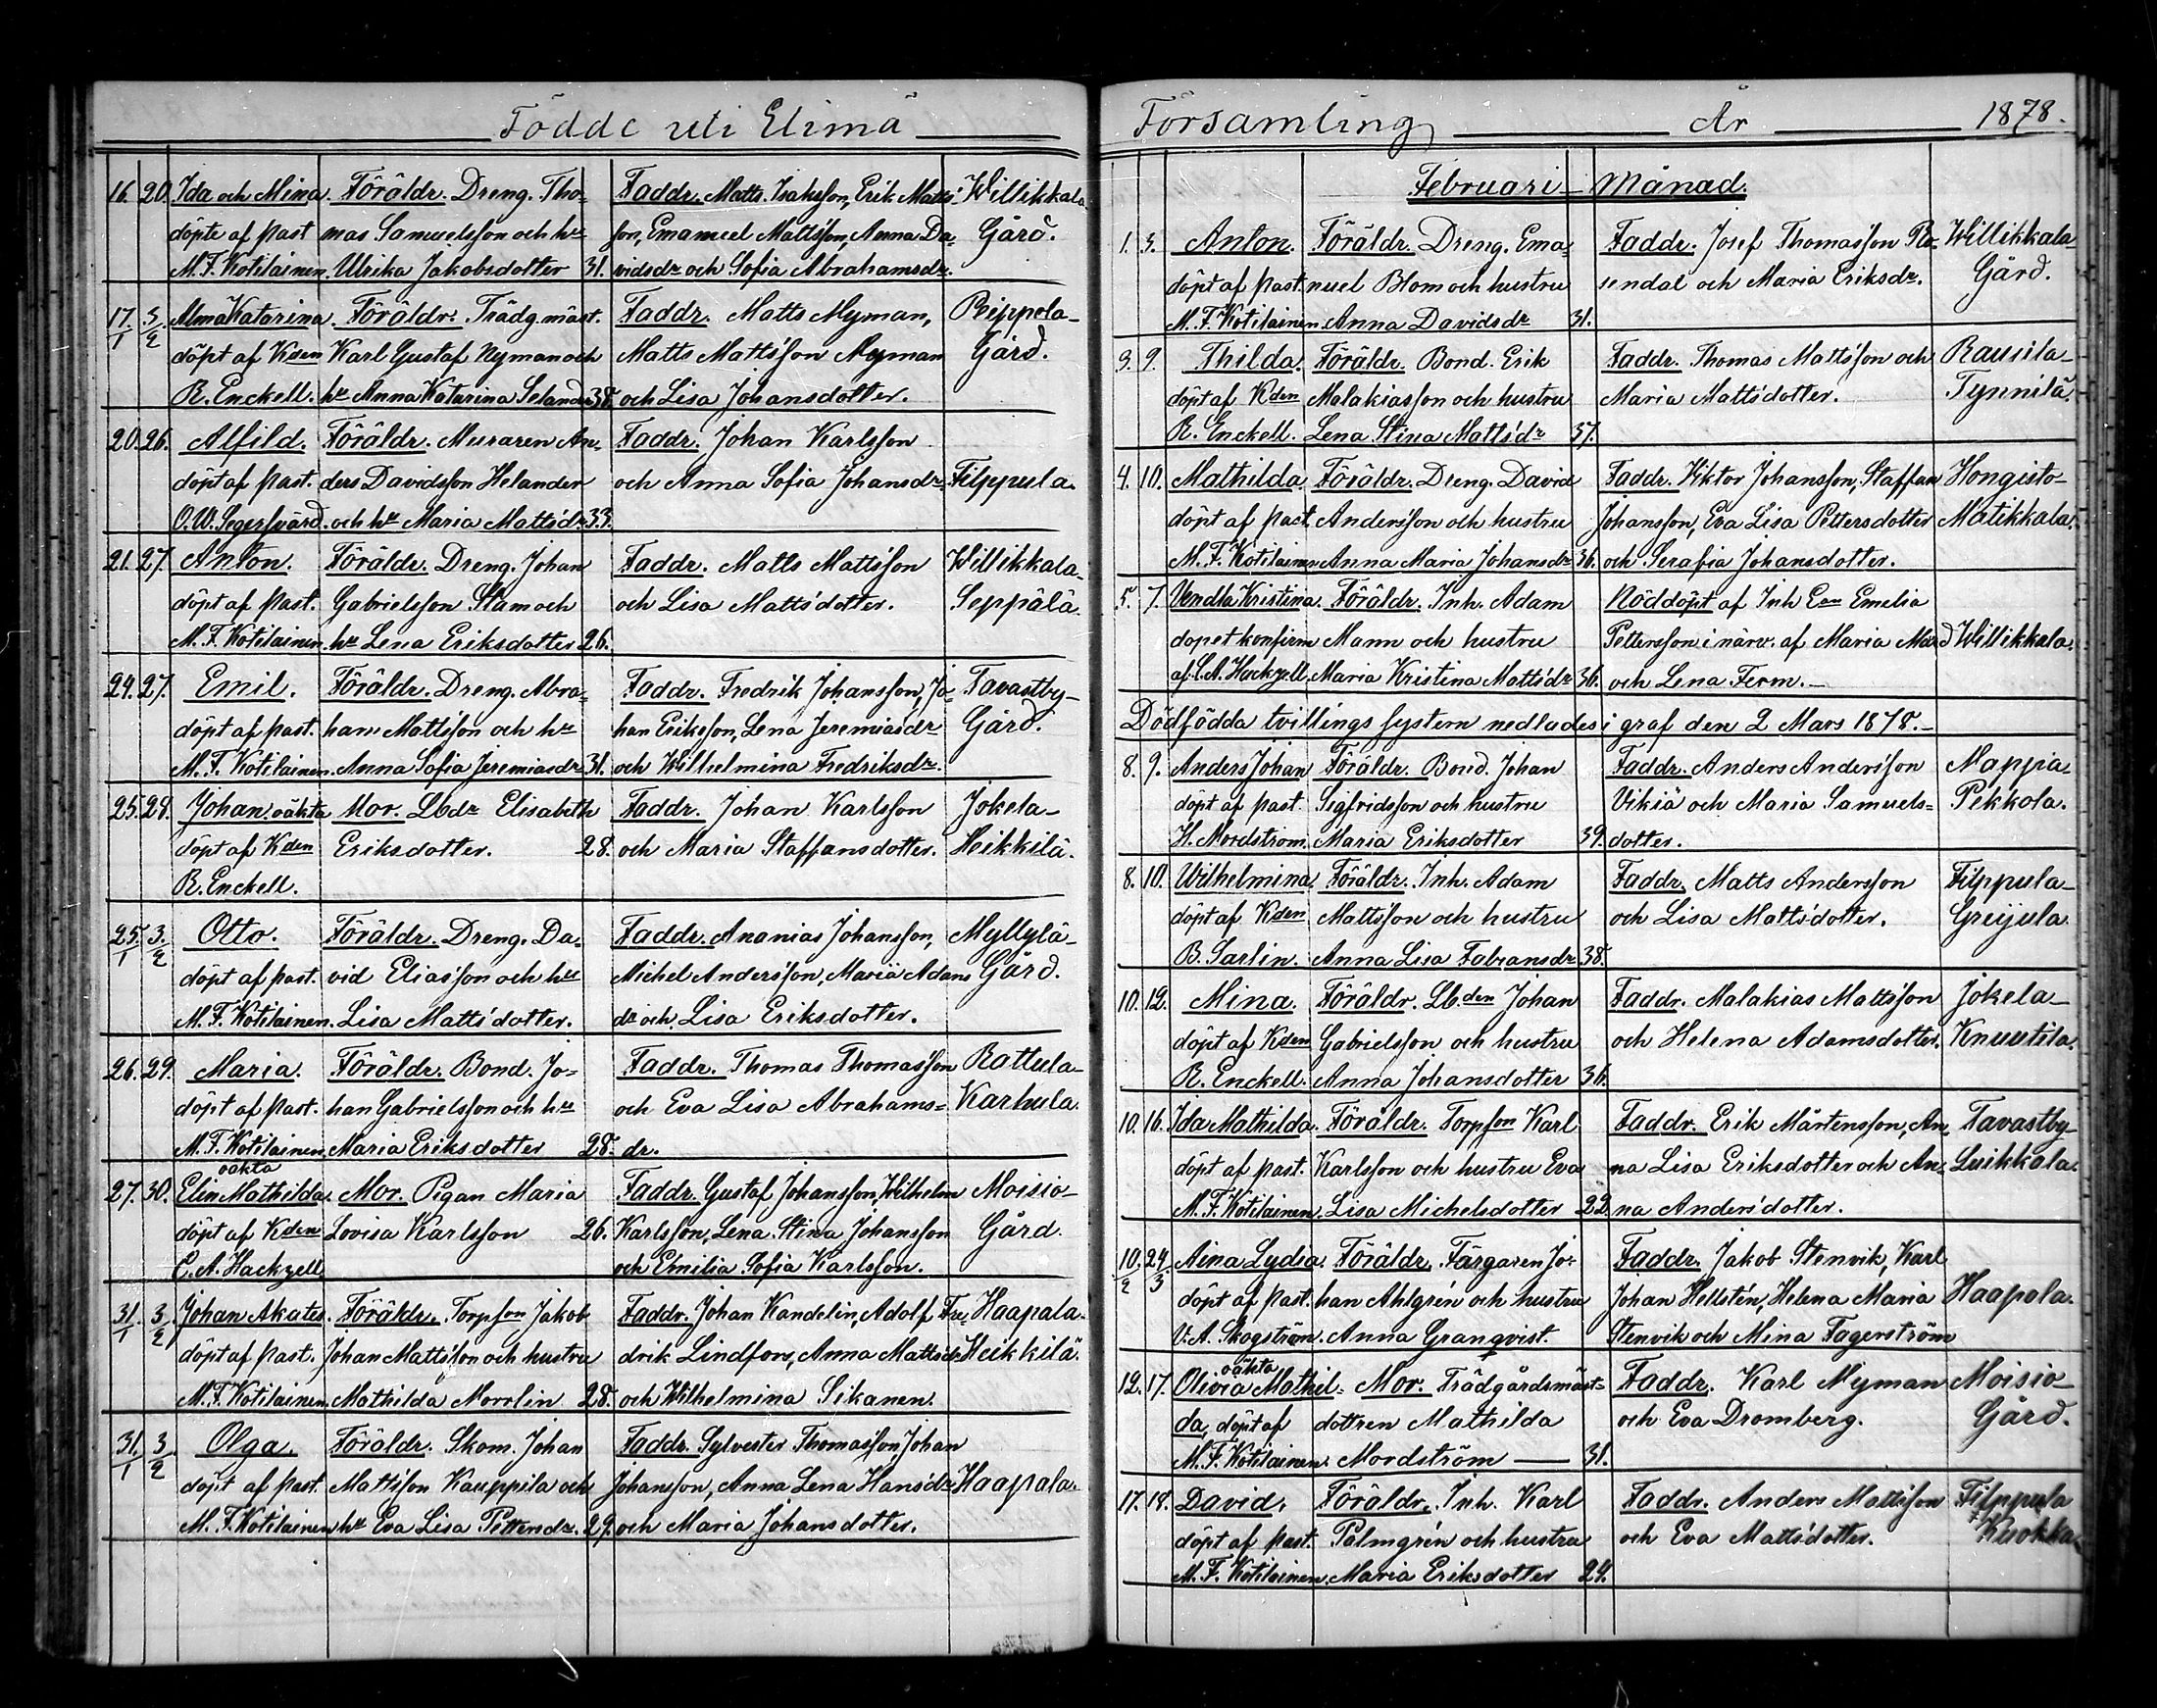 Födde uti Elimä
16. 20. Ida och Mina. Föräldr. Dreng. Tho- Faddr. Matts Isaksson, Erik Matts- Willikkala-
döpte af past mas Samuelsson och hu son, Emanuel Mattsson, Anna Da- Gård.
M. F. Kotilainen. Ulrika Jakobsdotter 31. vidsdr och Sofia Abrahamsdr.
17/1 3/2 Alma Katarina. Föräldr. Trädg. mäst. Faddr. Matts Nyman, Peippola-
döpt af Kden Karl Gustaf Nyman och Matts Mattsson Nyman Gård.
R. Enckell. hu Anna Katarina Selander 38. och Lisa Johansdotter.
20. 26. Alfild. Föräldr. Muraren An- Faddr. Johan Karlsson
döpt af past. ders Davidsson Helander och Anna Sofia Johansdr. Filppula.
O. W. Segersvärd. och hu Maria Mattsdr 33.
21. 27. Anton. Föräldr. Dreng. Johan Faddr. Matts Mattsson Willikkala-
döpt af past. Gabrielsson Stam och och Lisa Mattsdotter. Seppälä.
M. F. Kotilainen. hu Lena Eriksdotter 26.
24. 27. Emil. Föräldr. Dreng. Abra- Faddr. Fredrik Johansson, Jo- Tavastby-
döpt af past. ham Mattsson och hu han Eriksson, Lena Jeremiasdr Gård.
M. F. Kotilainen. Anna Sofia Jeremiasdr 31. och Wilhelmina Fredriksdr.
25. 28. Johan. oäkta Mor. Lbdr Elisabeth Faddr. Johan Karlsson Jokela-
döpt af Kden Eriksdotter. 28. och Maria Staffansdotter. Heikkilä.
R. Enckell.
25/1 3/2 Otto. Föräldr. Dreng. Da- Faddr. Ananias Johansson, Myllylä-
döpt af past. vid Eliasson och hu Michel Andersson, Maria Adams Gård.
M. F. Kotilainen. Lisa Mattsdotter. dr och Lisa Eriksdotter.
26. 29. Maria. Föräldr. Bond. Jo- Faddr. Thomas Thomasson Rattula-
döpt af past. han Gabrielsson och hu och Eva Lisa Abrahams- Karhula.
M. F. Kotilainen. Maria Eriksdotter 28. dr.
oäkta
27. 30. Elin Mathilda. Mor. Pigan Maria Faddr. Gustaf Johansson, Wilhelm Moisio-
döpt af Kden Lovisa Karlsson 26. Karlsson, Lena Stina Johansson Gård.
C. A. Hackzell och Emilia Sofia Karlsson.
31/1 3/2 Johan Akates. Föräldr. Torpson Jakob Faddr. Johan Kandelin, Adolf Fre- Haapala-
döpt af past. Johan Mattsson och hustru drik Lindfors, Anna Mattsdr Heikkilä.
M. F. Kotilainen. Mathilda Norrlin 28. och Wilhelmina Sikanen.
31/1 3/2 Olga. Föräldr. Skom. Johan Faddr. Sylvester Thomasson, Johan
döpt af past. Mattsson Kauppila och Johansson, Anna Lena Hansdr Haapala.
M. F. Kotilainen hu Eva Lisa Pettersdr. 29. och Maria Johansdotter.
Församling År 1878.
Februari Månad.
1. 3. Anton. Föräldr. Dreng. Ema- Faddr. Josef Thomasson Ro- Willikkala-
döpt af past. nuel Blom och hustru sendal och Maria Eriksdr. Gård.
M. F. Kotilainen Anna Davidsdr 31.
3. 9. Thilda. Föräldr. Bond. Erik Faddr. Thomas Mattsson och Rausila-
döpt af Kden Malakiasson och hustru Maria Mattsdotter. Tynnilä.
R. Enckell. Lena Stina Mattsdr 37.
4. 10. Mathilda. Föräldr. Dreng. David Faddr. Viktor Johansson, Staffan Hongisto-
döpt af past Andersson och hustru Johansson, Eva Lisa Pettersdotter Matikkala.
M. F. Kotilainen Anna Maria Johansdr 36. och Serafia Johansdotter.
5. 7. Vendla Kristina. Föräldr. Inh. Adam Nöddöpt af Inh Emelia
dopet konfirm Mann och hustru Pettersson i närv. af Maria Willikkala.
af C. A. Hackzell Maria Kristina Mattsdr 36. och Lena Ferm.
Dödfödda tvillings systern nedlades i graf den 2 Mars 1878.
8. 9. Anders Johan Föräldr. Bond. Johan Faddr. Anders Andersson Mappia-
döpt af past. Sigfridsson och hustru Vikiä och Maria Samuels- Pekkola.
H. Nordström. Maria Eriksdotter 39. dotter.
8. 10. Wilhelmina. Föräldr. Inh. Adam Faddr. Matts Andersson Filppula-
döpt af Kden Mattsson och hustru och Lisa Mattsdotter. Greijula.
B. Sarlin. Anna Lisa Fabiansdr 38.
10. 12. Mina. Föräldr. Lb.den Johan Faddr. Malakias Mattsson Jokela-
döpt af Kden Gabrielsson och hustru och Helena Adamsdotter. Knuutila.
R. Enckell. Anna Johansdotter 36.
10. 16. Ida Mathilda. Föräldr. Torpson Karl Faddr. Erik Mårtensson, An- Tavastby-
döpt af past. Karlsson och hustru Eva na Lisa Eriksdotter och An- Luikkala.
M. F. Kotilainen. Lisa Michelsdotter 22. na Andersdotter.
10/2 24/3 Aina Lydia. Föräldr. Färgaren Jo- Faddr. Jakob Stenvik, Karl
döpt af past. han Ahlgrén och hustru Johan Hellstén, Helena Maria Haapala.
V. A. Skogström. Anna Granqvist. Stenvik och Mina Fagerström
oäkta
12. 17. Olivia Mathil- Mor. Trädgårdsmäst- Faddr. Karl Nyman Moisio-
da, döpt af dottren Mathilda och Eva Dromberg. Gård.
M. F. Kotilainen. Nordström 31.
17. 18. David. Föräldr. Inh. Karl Faddr. Anders Mattsson Filppula
döpt af past. Palmgrén och hustru och Eva Mattsdotter. Kuokka-
M. F. Kotilainen. Maria Eriksdotter 24.